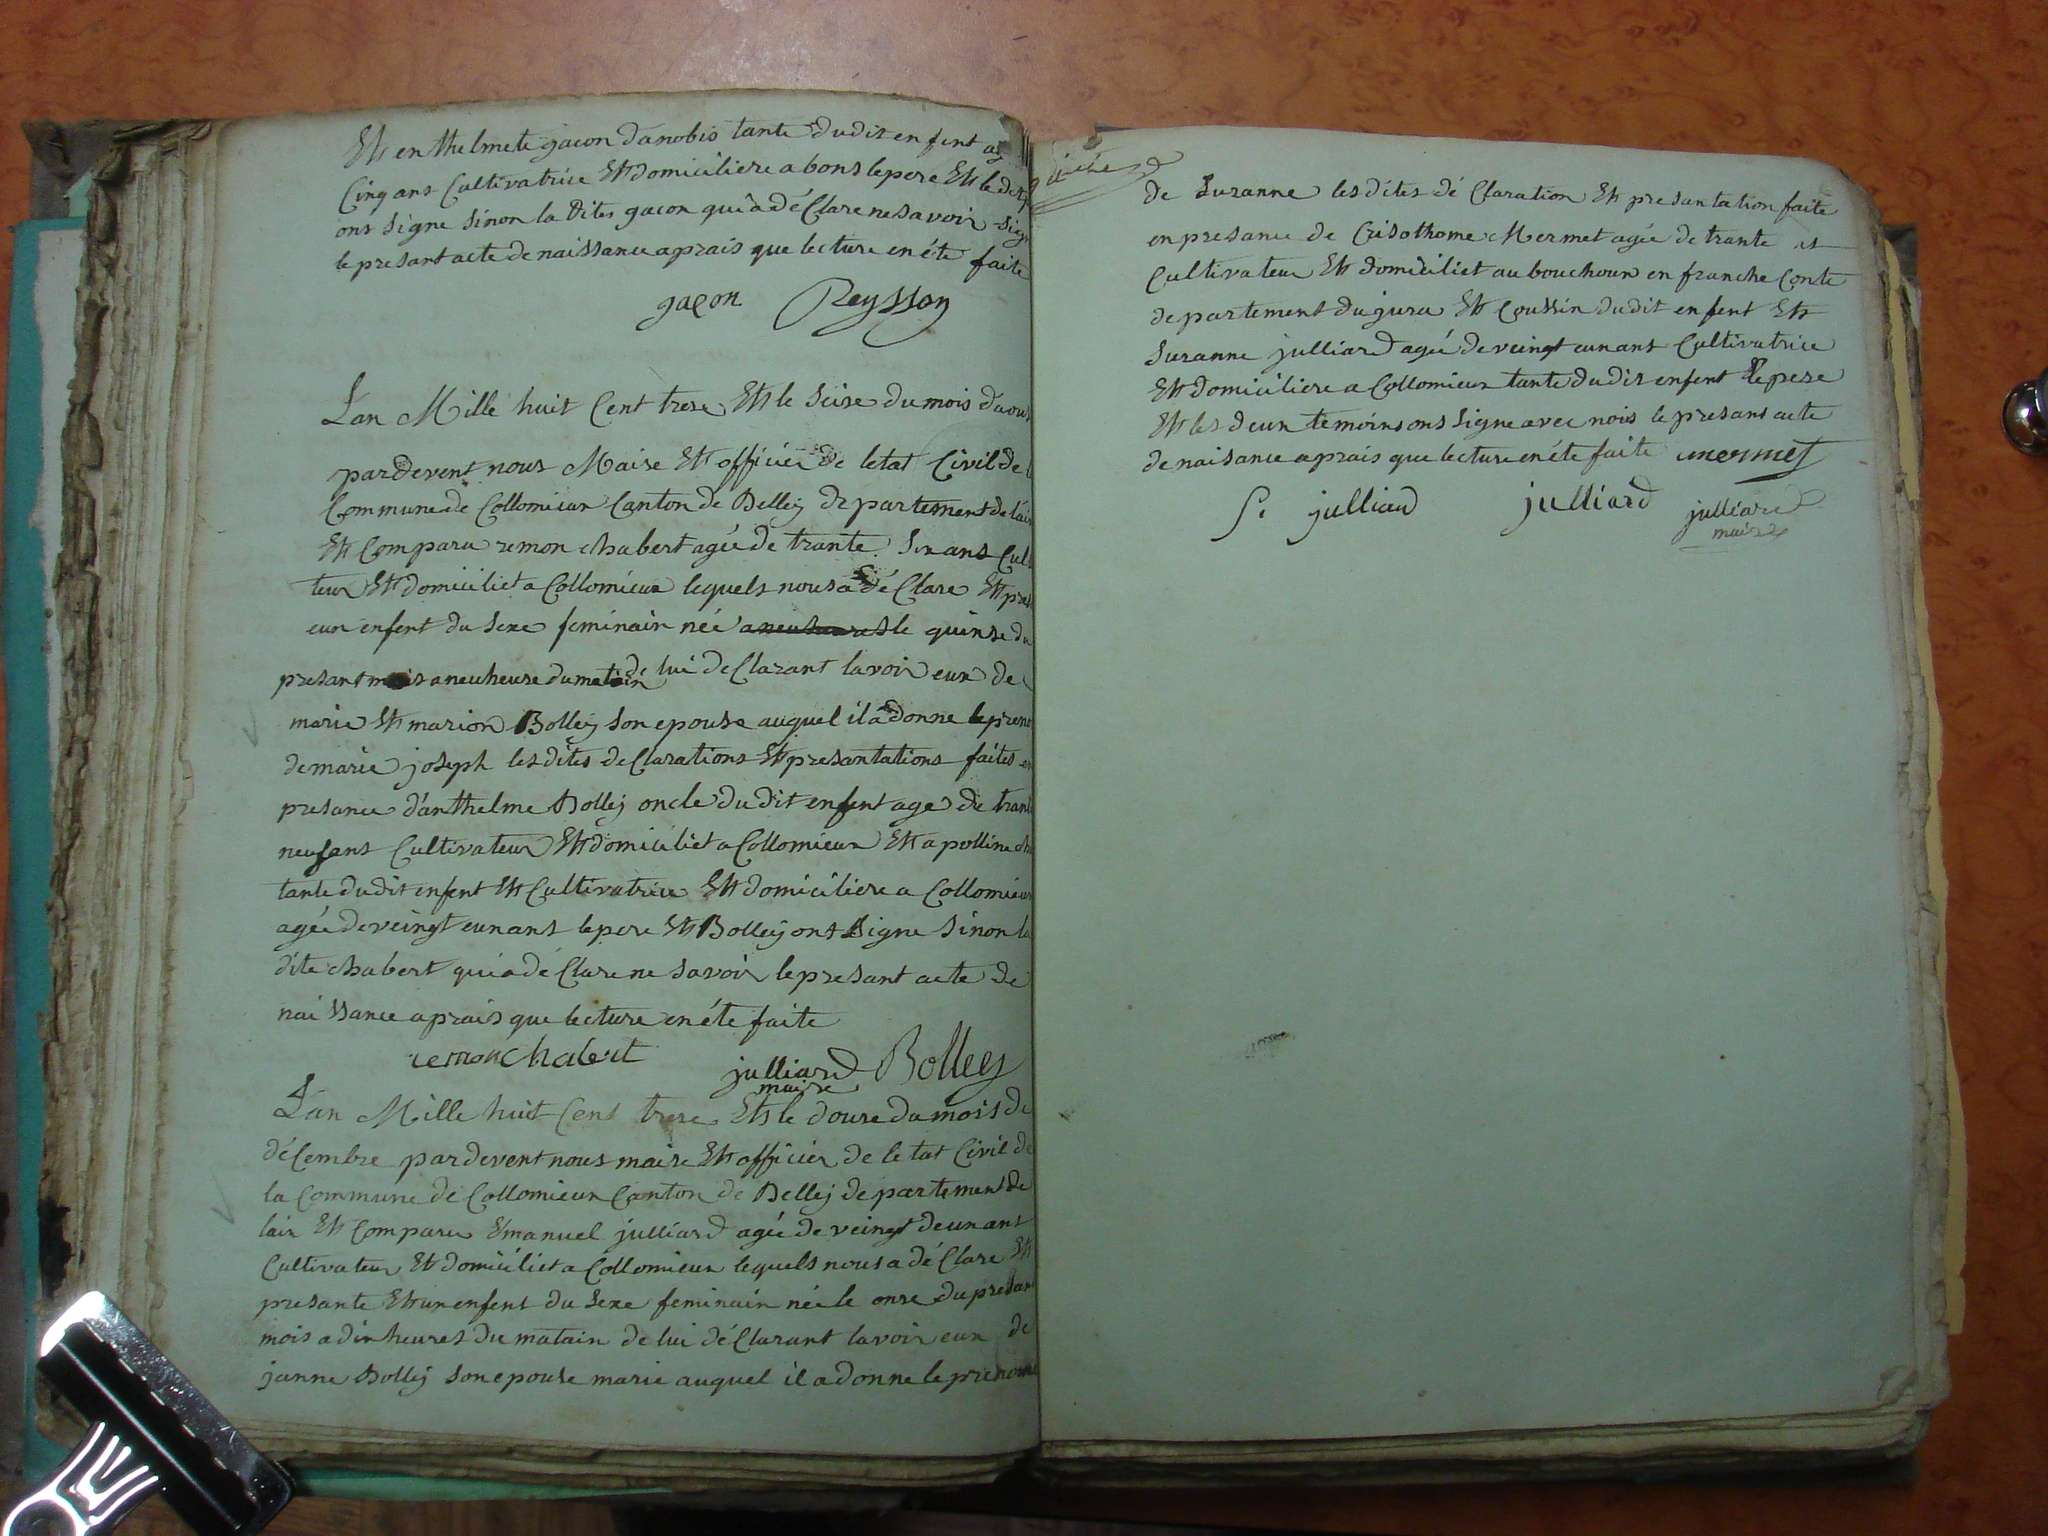 Ett enthelmete gacon danobis tante dudit enfent
Cinq ans Cultivatrice Ett domiciliere a bons le pere Ett le
ont Signe Sinon la dites gacon qui a dé Clare ne Savoir
le presant acte de naissance aprais que lecture en éte faite
gacon Reysson
L'an Mille huit Cent trese Ett le Seise du mois daou
pardevent nous Maire Ett officier de letat Civil de
Commune de Collomieux Canton de Belley departement de lain
Ett Comparu remon chabert agée de trante Six ans Cul
teur Ett domiciliet a Collomieux lequels nous a dé Clare Ett pres
eun enfent du Sexe feminain née le quinse du
presant mois a neu heure du matain de lui de Clarant lavoir eux de
marie Ett marion Bolley Son epouse auquel il a donne le preno
de marie joseph les dites de Clarations Ett presantations faites en
presance d'anthelme Bolley oncle du dit enfent age de trante
neuf ans Cultivateur Ett domiciliet a Collomieux Ett apolline
tante du dit enfent Ett Cultivatrice Ett domiciliere a Collomieux
agée de veingt eun ans le pere Ett Bolley ont Signe Sinon la
dite chabert qui a dé Clare ne Savoir le presant acte de
naissance aprais que lecture en éte faite
remon chabert julliard Bolley
maire
L'an Mille huit Cens trese Ett le douse du mois de
déCembre pardevent nous maire Ett officier de letat Civil de
la Commune de Collomieux Canton de Belley departement de
lain Ett Comparu Emanuel julliard agée de veingt deux ant
Cultivateur Ett domiciliet a Collomieux lequels nous a dé Clare Ett
presante Ett un enfent du Sexe feminain née le onse du presant
mois a dix heures du matain de lui dé Clarant lavoir eux de
janne Bolley Son epouse marie auquel il a donne le prenom
de Suzanne les dites dé Claration Ett presantation faite
en presance de Crisothome Mermet agée de trante
Cultivateur Ett domiciliet au bouchoux en franche Conte
departement du jura Ett Coussin du dit enfent Ett
Suzanne julliard agée de veingt eun ans Cultivatrice
Ett domiciliere a Collomieux tante du dit enfent le pere
Ett les deux temoins ons Signe avec nous le presans acte
de naisance aprais que lecture en éte faite mermet
S. julliard julliard julliard
maire